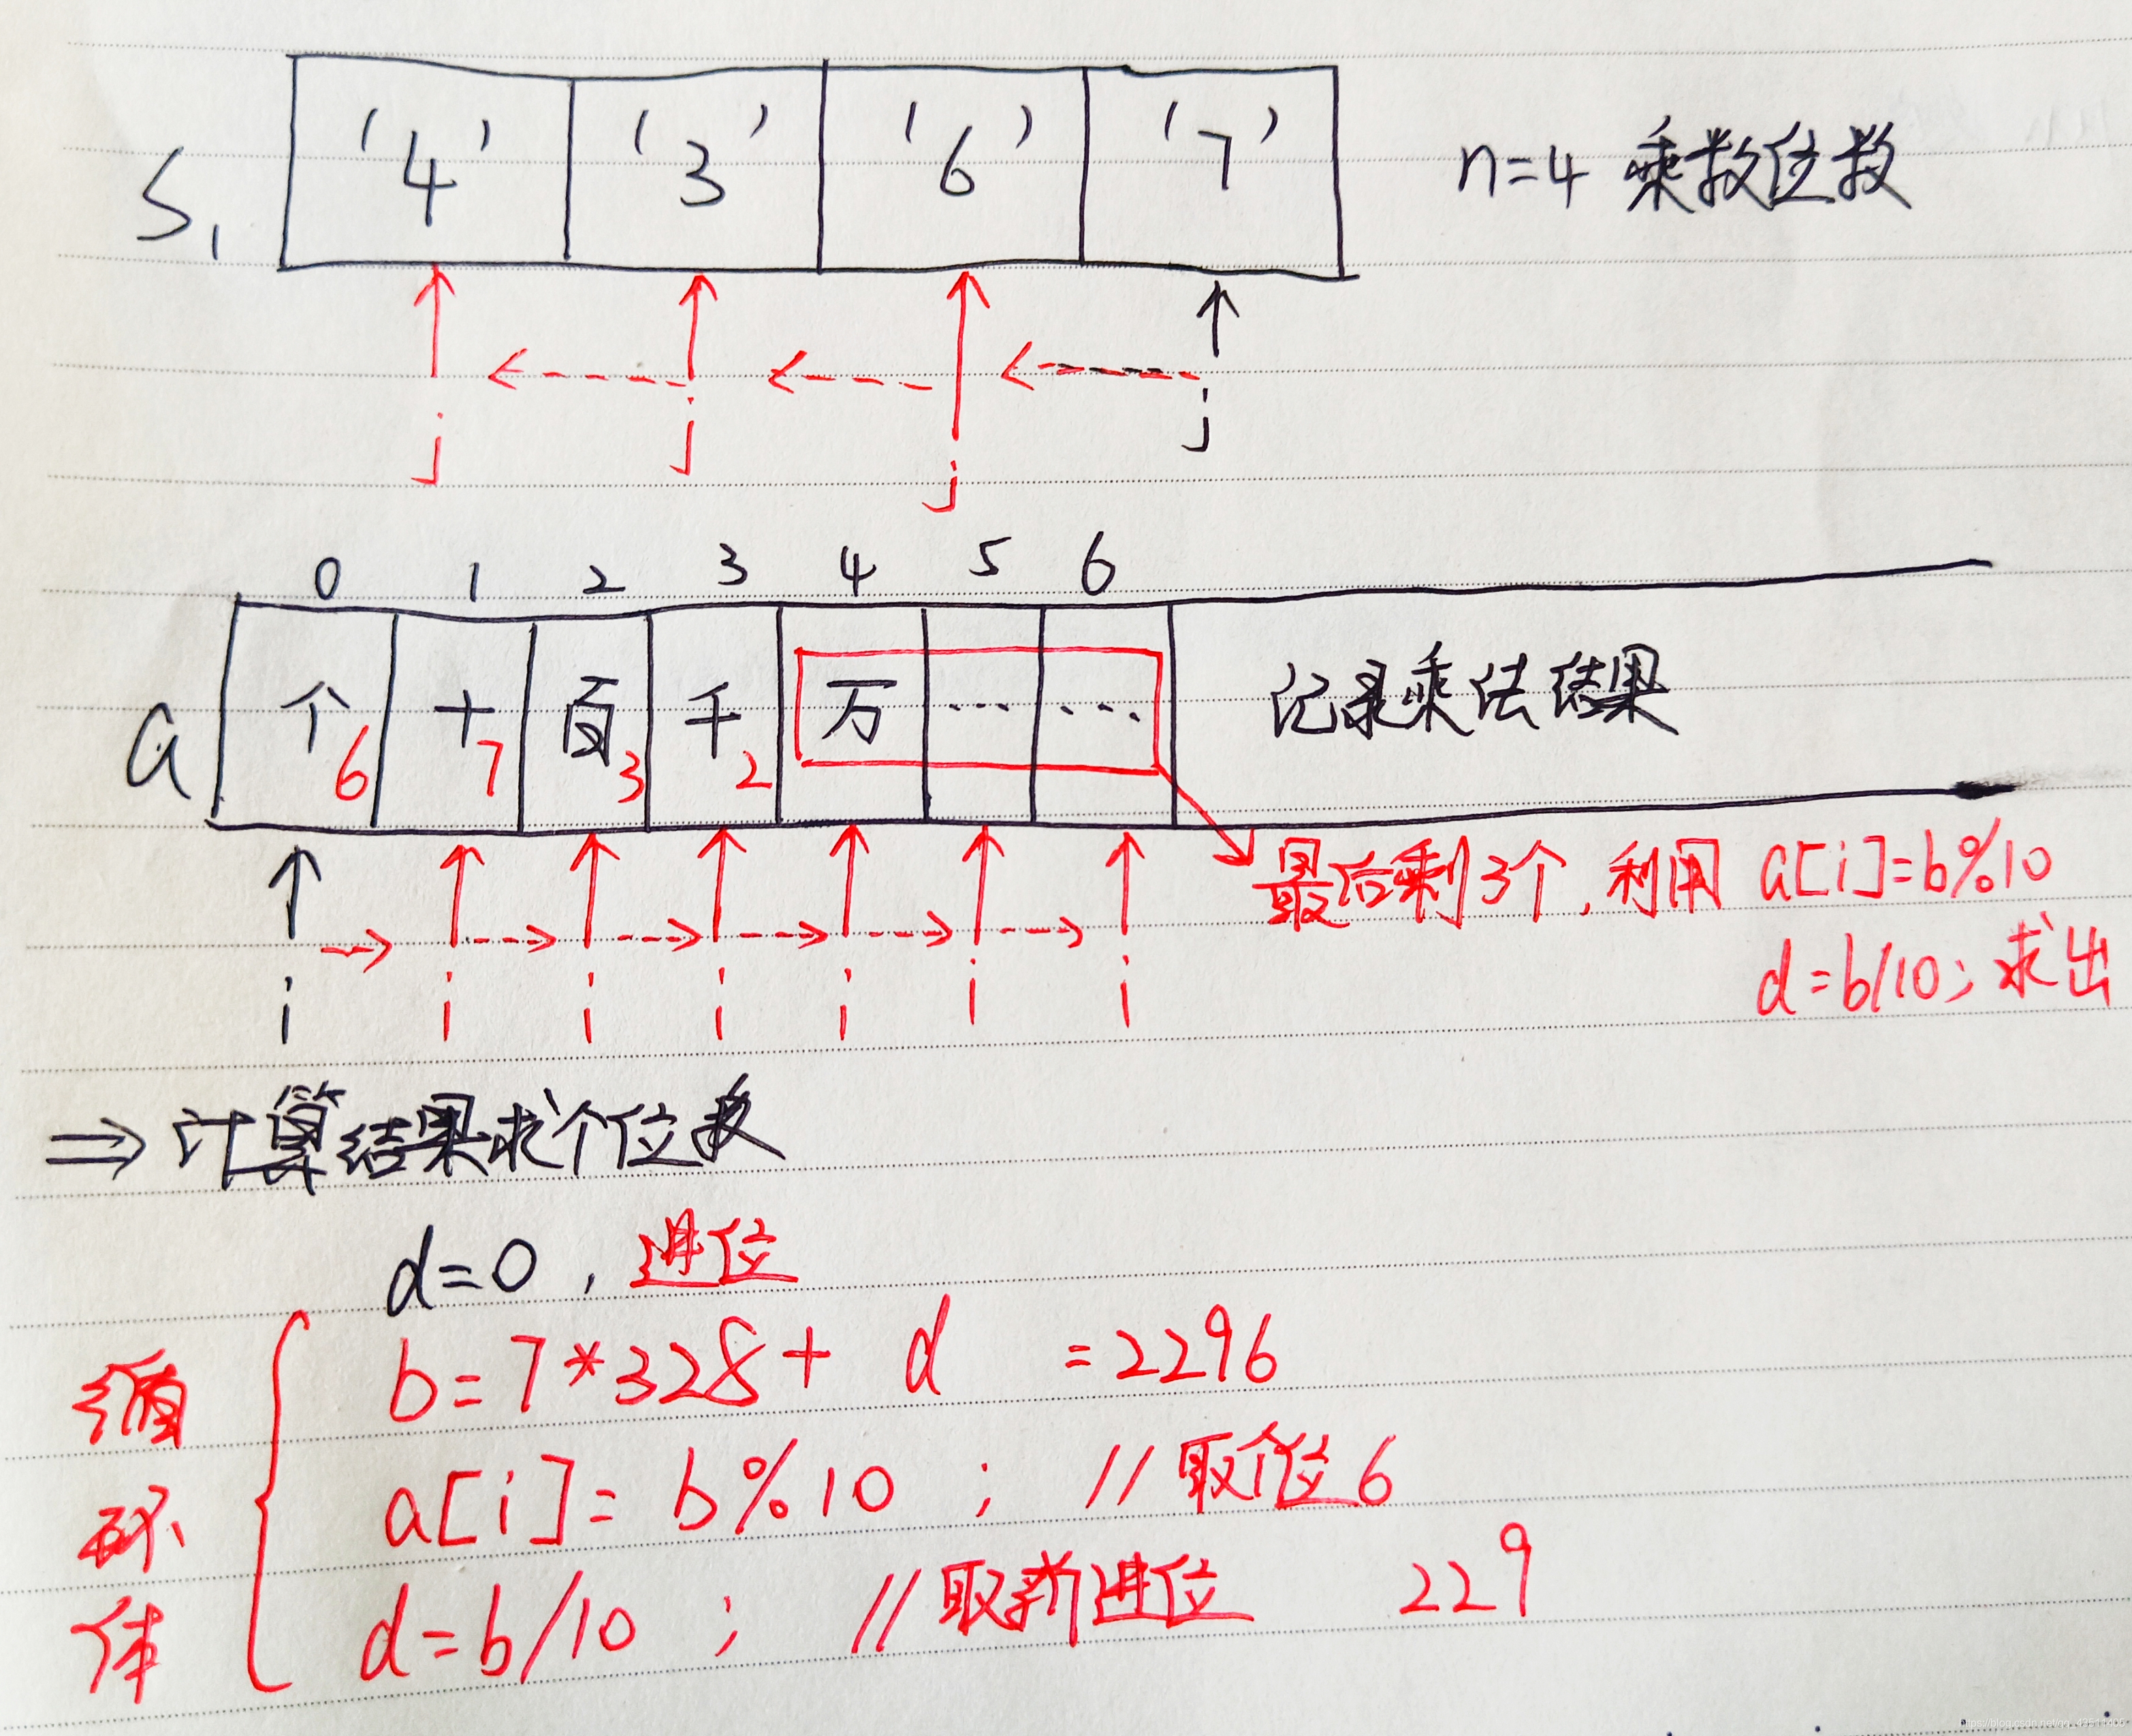 S1 '4' '3' '6' '7' n=4 乘数位数
j j j j
0 1 2 3 4 5 6
a 个 十 百 千 万 ... ... 记录乘法结果
6 7 3 2
最后剩3个,利用 a[i]=b%10
d=b/10; 求出
i i i i i i i
⇒ 计算结果求个位数
d=0, 进位
循环体
b=7*328+ d =2296
a[i]= b%10 ; //取个位6
d=b/10 ; //取新进位 229